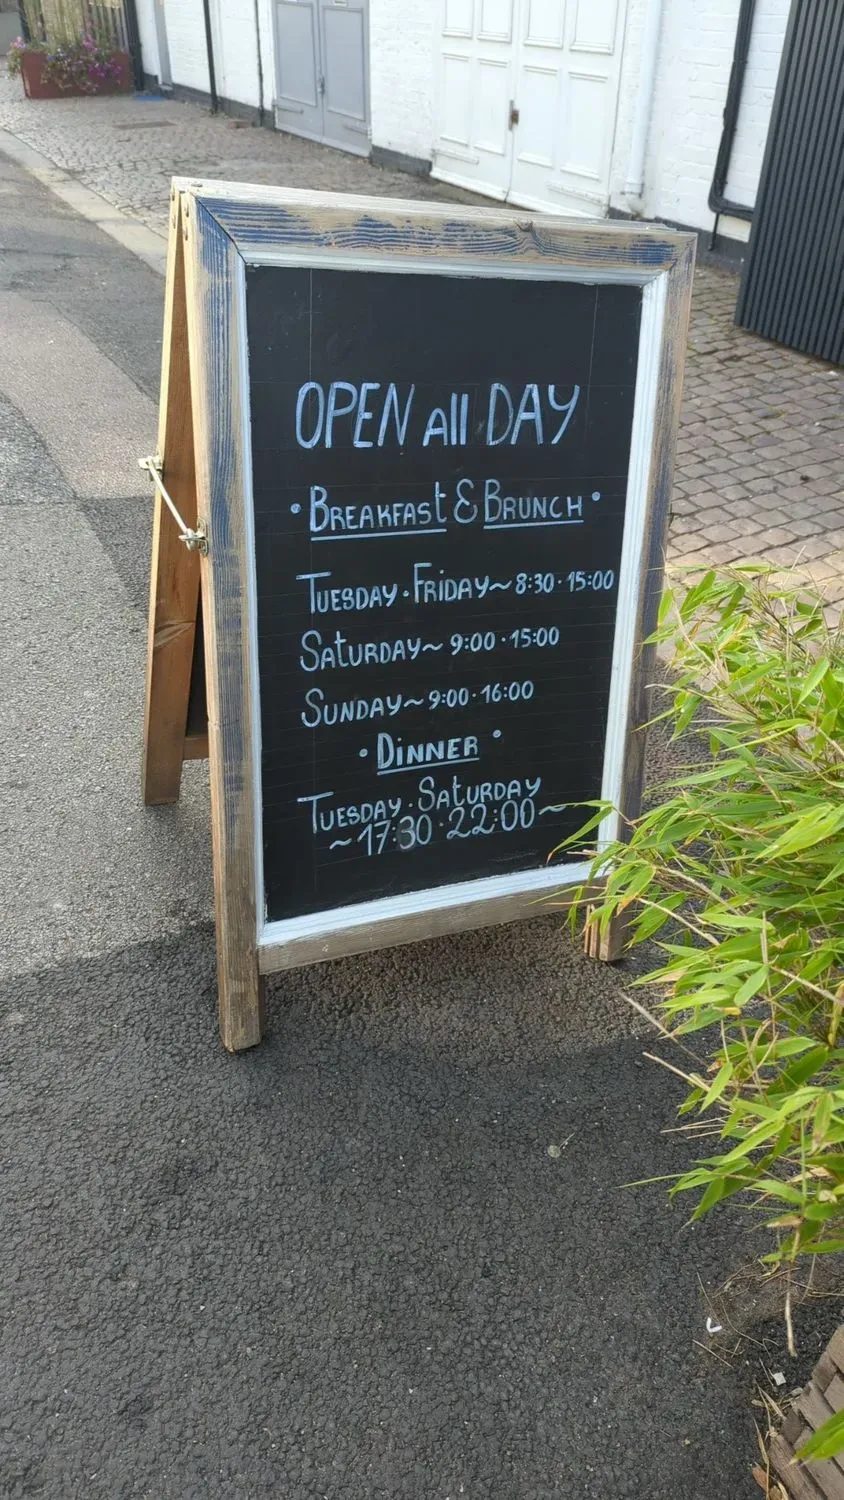 OPEN all DAY
• BREAKFAST & BRUNCH •
TUESDAY · FRIDAY ~ 8:30 · 15:00
SATURDAY ~ 9:00 · 15:00
SUNDAY ~ 9:00 · 16:00
• DINNER •
TUESDAY · SATURDAY
~ 17:30 · 22:00 ~